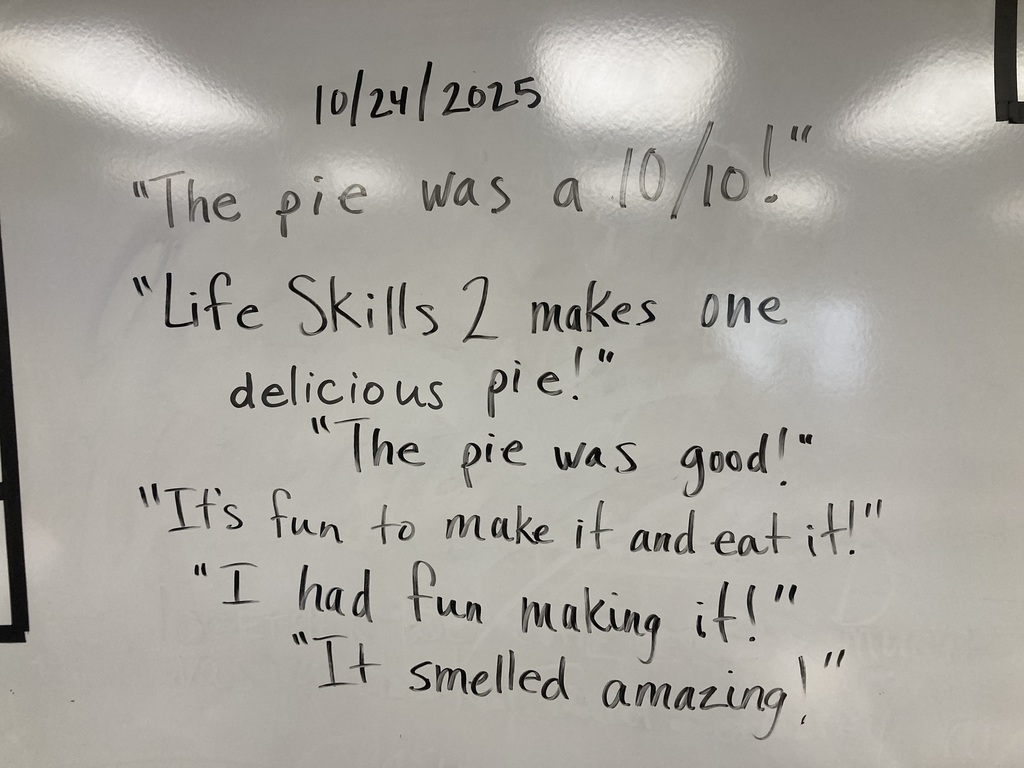 10/24/2025
"The pie was a 10/10!"
"Life Skills 2 makes one
delicious pie!"
"The pie was good!"
"It's fun to make it and eat it!"
"I had fun making it!"
"It smelled amazing!"